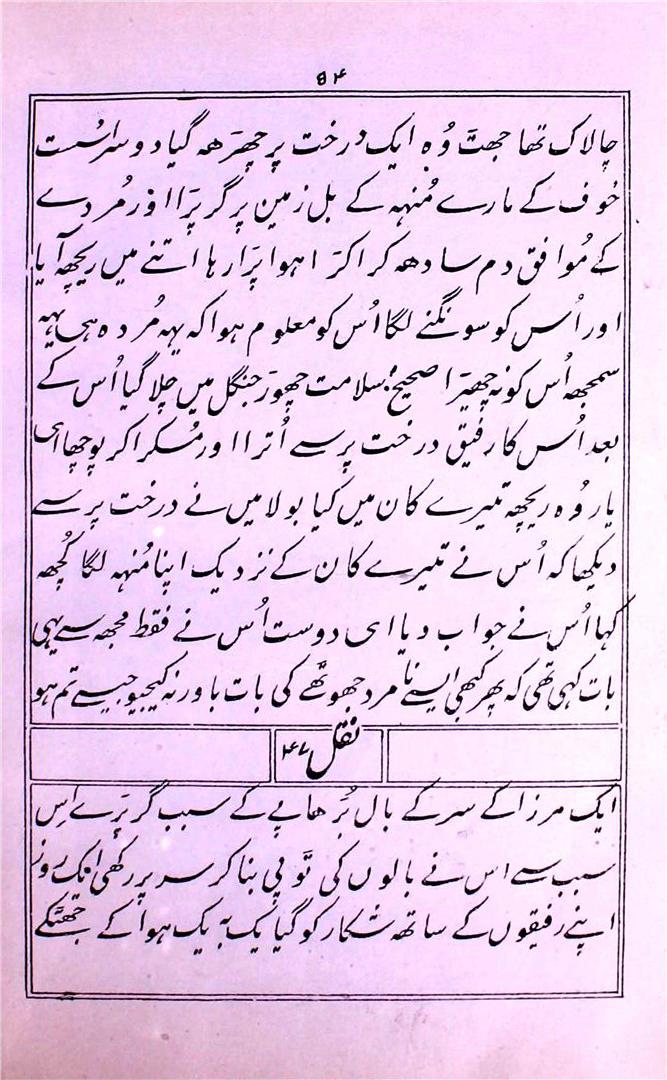 ۵۴
چالاک تھا جھٹ وُہ ایک درخت پر چھڑھ گیا دوسرا سُست
خوف کے مارے مُنہہ کے بل زمین پر گر پڑا اور مُردے
کے مُوافق دم سادھہ کر اکڑا ہوا پڑا رہا اتنے میں ریچھہ آیا
اور اُس کو سونگنے لگا اُس کو معلوم ہوا کہ یہہ مُردہ ہی یہہ
سمجھہ اُس کو نہ چھیڑا صحیح سلامت چھوڑ جنگل میں چلا گیا اُس کے
بعد اُس کا رفیق درخت پر سے اُترا اور مُسکرا کر پوچھا ای
یار وُہ ریچھہ تیرے کان میں کیا بولا میں نے درخت پر سے
دیکھا کہ اُس نے تیرے کان کے نزدیک اپنا مُنہہ لگا کُچھہ
کہا اُس نے جواب دیا ای دوست اُس نے فقط مجھہ سے یہی
بات کہی تھی کہ پھر کبھی ایسے نامرد جھوٹھے کی بات باور نہ کیجیو جیسے تم ہو
نقل ۴۷
ایک مرزا کے سر کے بال بُڑھاپے کے سبب گر پڑے اِس
سبب سے اس نے بالوں کی ٹوپی بنا کر سر پر رکھی ایک روز
اپنے رفیقوں کے ساتھہ شکار کو گیا یک بہ یک ہوا کے جھٹکے